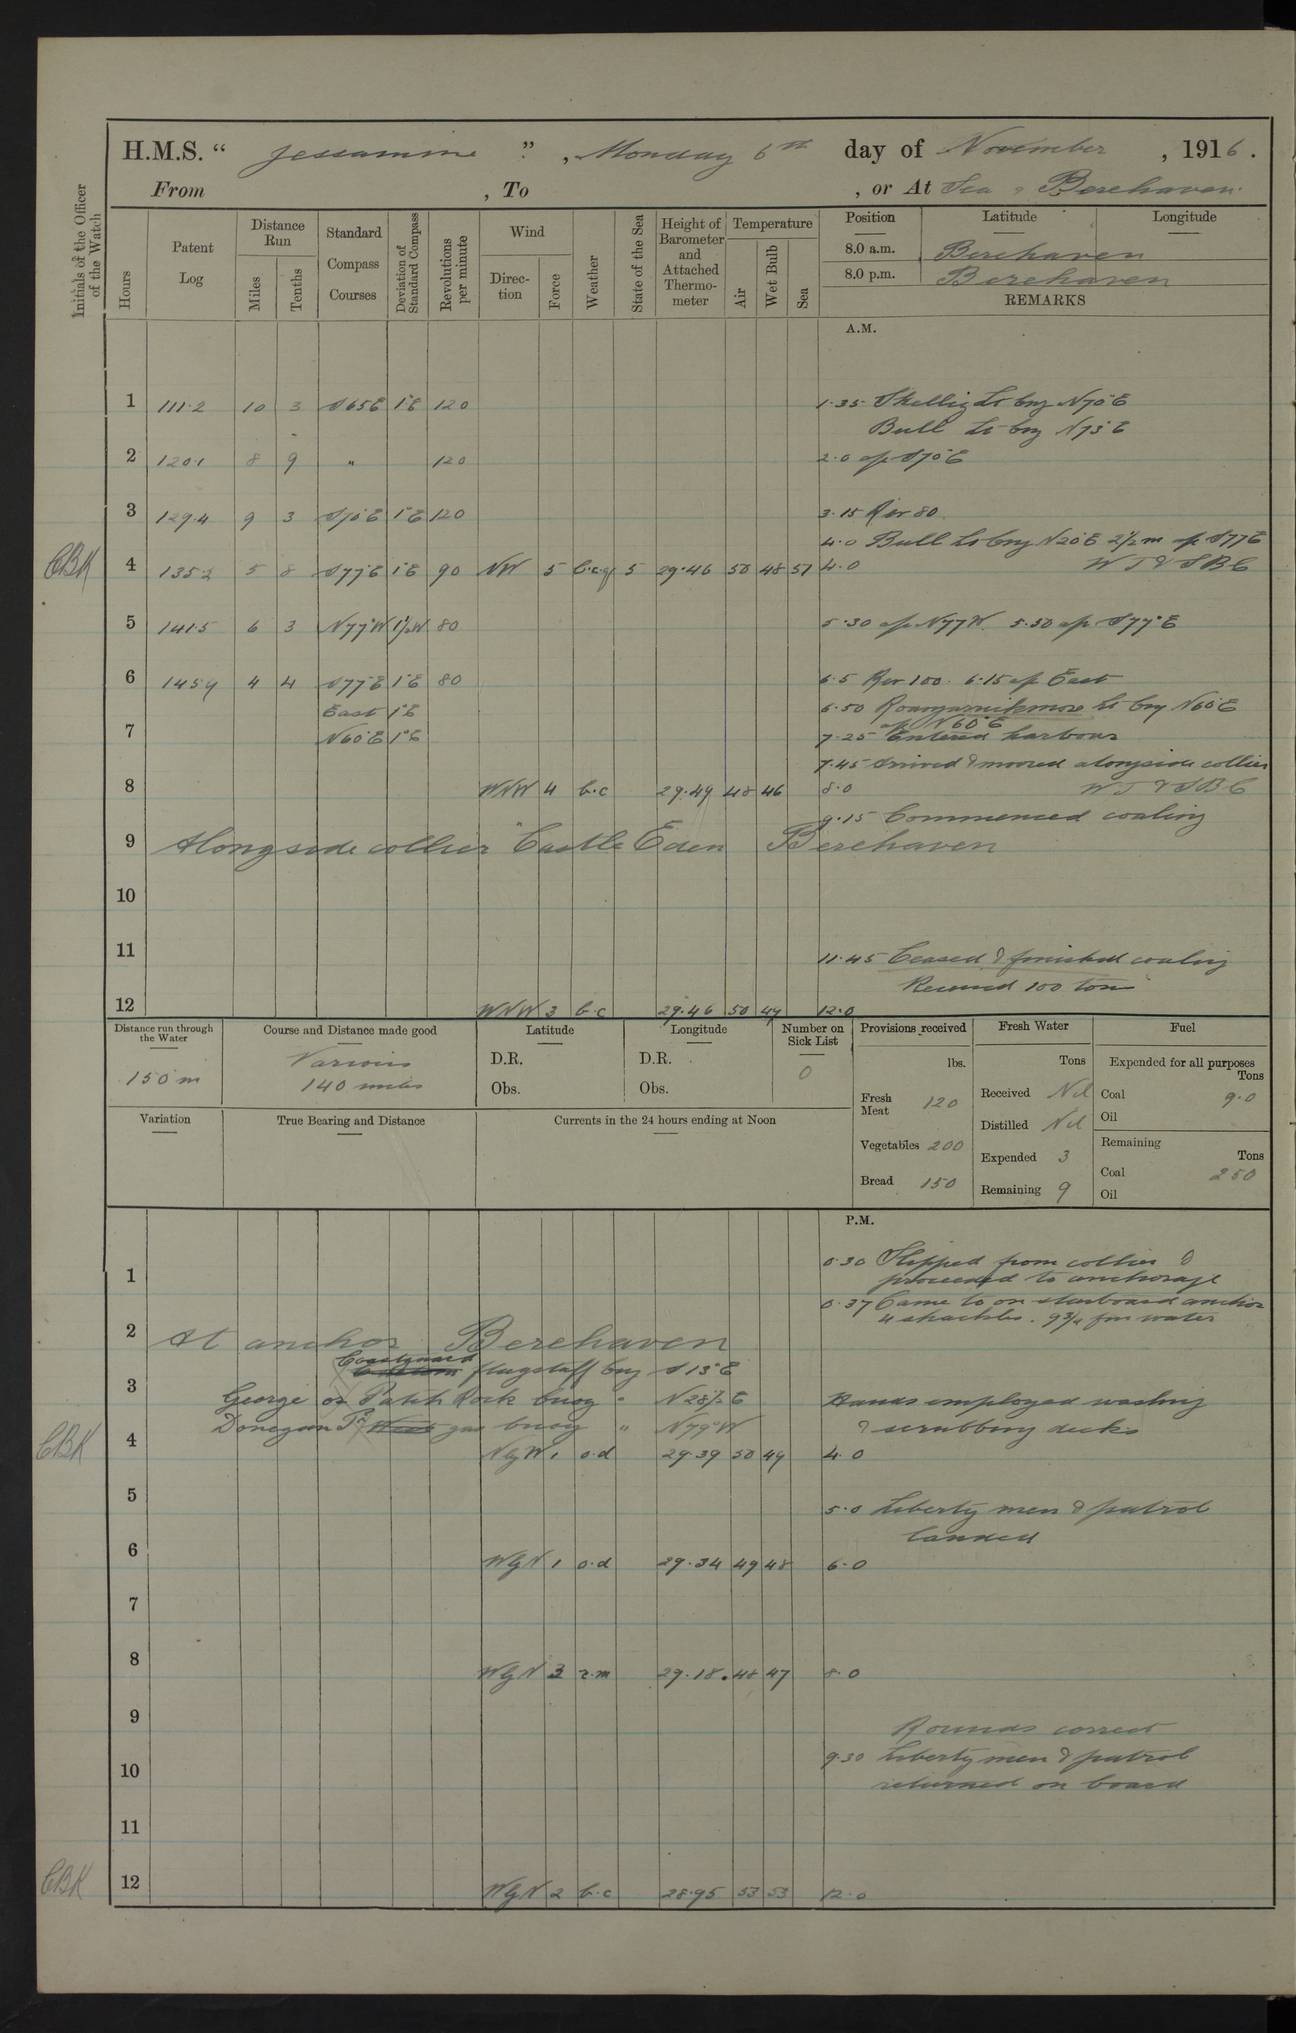 H.M.S. “ Jessamine ” , Monday 6th day of November , 1916 .
From , To , or At Sea & Berehaven
Initials of the Officer of the Watch
Hours
Patent Log
Distance Run
Miles
Tenths
Standard Compass Courses
Deviation of Standard Compass
Revolutions per minute
Wind
Direc- tion
Force
Weather
State of the Sea
Height of Barometer and Attached Thermo- meter
Temperature
Air
Wet Bulb
Sea
Position
Latitude
Longitude
8.0 a.m. Berehaven
8.0 p.m. Berehaven
REMARKS
A.M.
1 111.2 10 3 S65E 1°E 120 1.35 Skellig Lt brg N70°E
Bull Lt brg N75°E
2 120.1 8 9 " 120 2.0 a/c S70°E
3 129.4 9 3 S70°E 1°E 120 3.15 Rev 80
4.0 Bull Lt brg N20°E 2½ m a/c S77E
CBK 4 135.2 5 8 S77°E 1°E 90 NW 5 b.c.q 5 29.46 50 48 51 4.0 WT & SBC
5 141.5 6 3 N77°W 1½W 80 5.30 a/c N77W 5.50 a/c S77°E
6 145.9 4 4 S77°E 1°E 80 6.5 Rev 100. 6.15 a/c East
East 1°E 6.50 Roancarrickmore Lt brg N60°E
a/c N60°E
7 N60°E 1°E 7.25 Entered harbour
7.45 Arrived & moored alongside collier
8 WNW 4 b.c 29.49 48 46 8.0 WT & SBC
9.15 Commenced coaling
9 Alongside collier "Castle Eden Berehaven
10
11 11.45 Ceased & finished coaling
Received 100 tons
12 WNW 3 b.c 29.46 50 49 12.0
Distance run through the Water
150 m
Course and Distance made good
Various
140 miles
Latitude
D.R.
Obs.
Longitude
D.R.
Obs.
Number on Sick List
0
Provisions received
lbs.
Fresh Meat 120
Vegetables 200
Bread 150
Fresh Water
Tons
Received Nil
Distilled Nil
Expended 3
Remaining 9
Fuel
Expended for all purposes
Tons
Coal 9.0
Oil
Remaining
Tons
Coal 250
Oil
Variation
True Bearing and Distance
Currents in the 24 hours ending at Noon
P.M.
0.30 Slipped from collier &
1 proceeded to anchorage
0.37 Came to on starboard anchor
4 shackles. 9¾ fm water
2 At anchor Berehaven
Coastguard flagstaff brg S15°E
3 George or Patch Rock buoy " N28½E Hands employed washing
Donegan Pt gas buoy " N79°W & scrubbing decks
CBK 4 NbyW 1 o.d 29.39 50 49 4.0
5 5.0 Liberty men & patrol
landed
6 WbyN 1 o.d 29.34 49 48 6.0
7
8 WbyN 3 r.m 29.18 48 47 8.0
9 Rounds correct
9.30 Liberty men & patrol
10 returned on board
11
CBK 12 WbyN 2 b.c 28.95 53 53 12.0